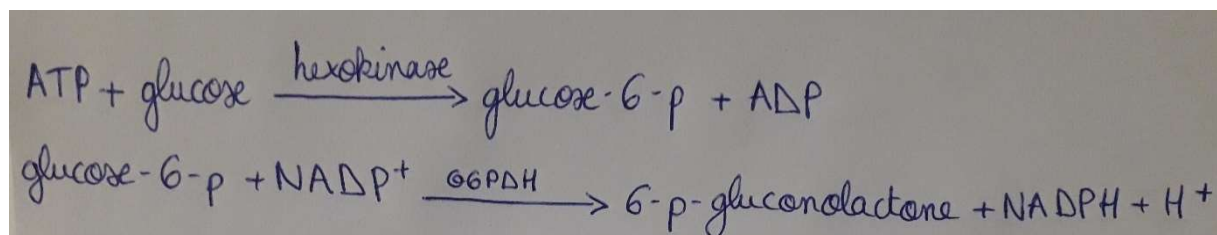 ATP + glucose hexokinase → glucose-6-p + ADP
glucose-6-p + NADP⁺ G6PDH → 6-p-gluconolactone + NADPH + H⁺